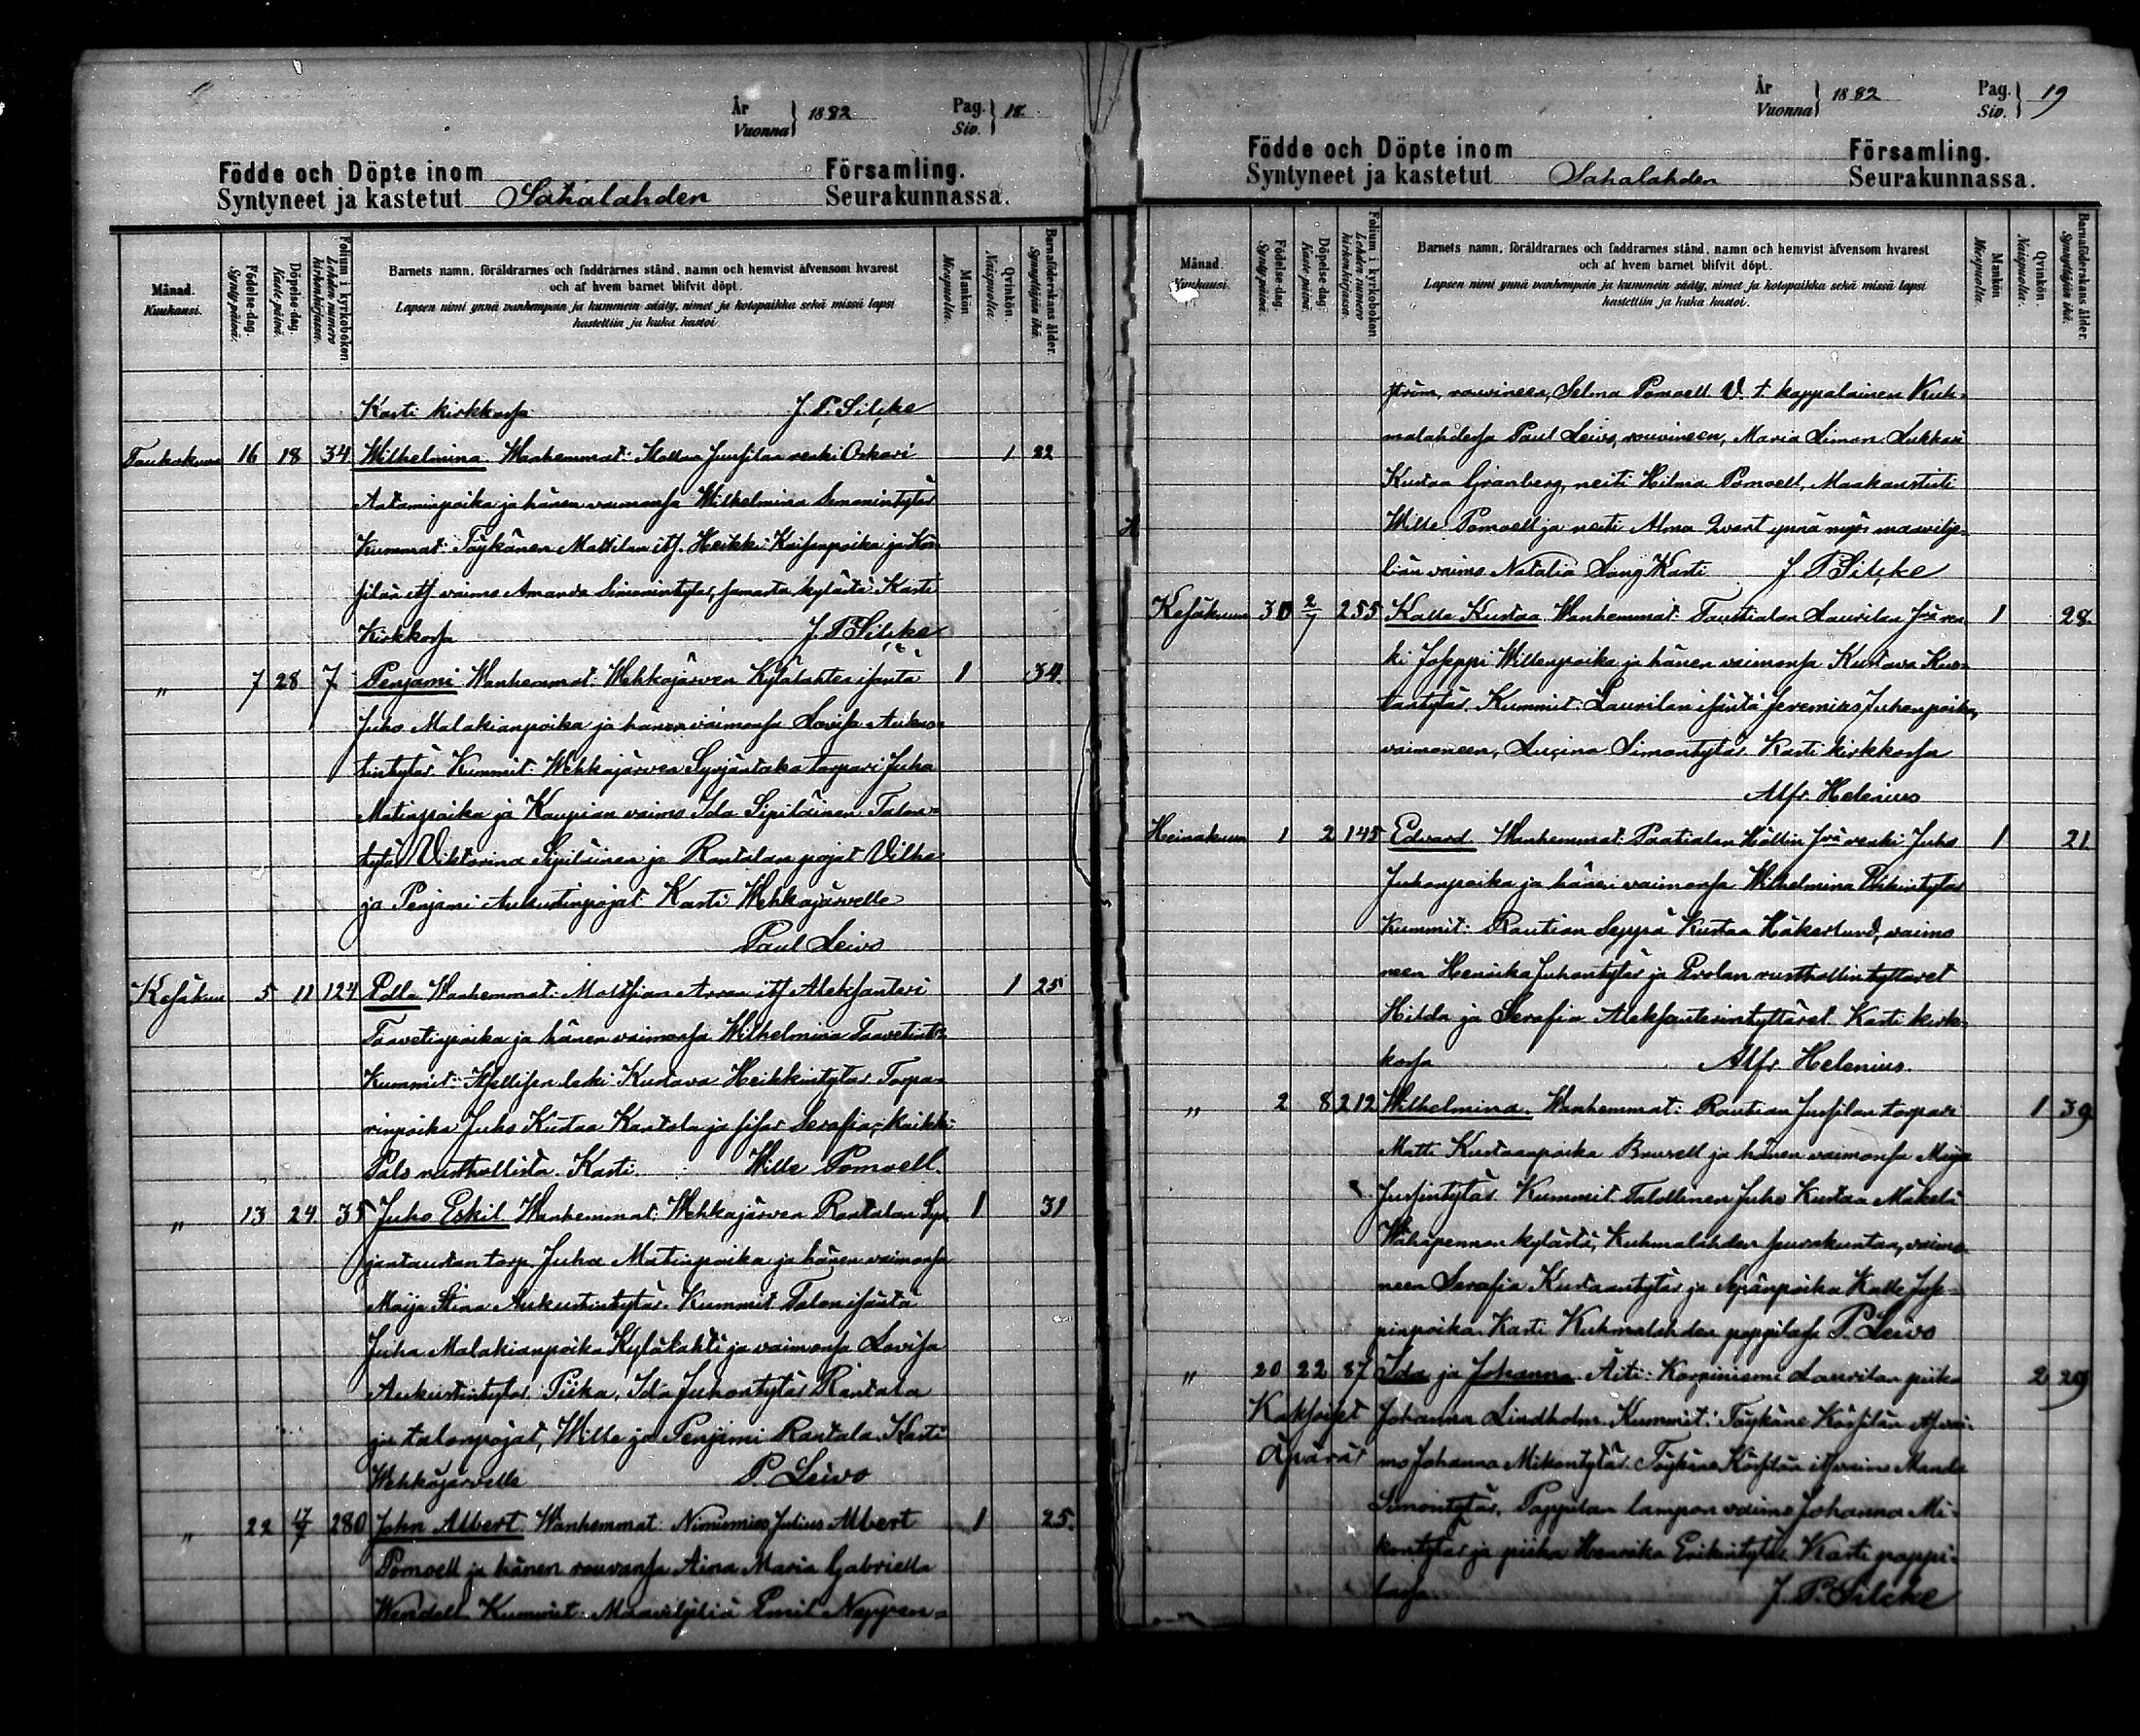 År
Vuonna } 1882 Pag.
Siv. } 18.
Födde och Döpte inom Församling.
Syntyneet ja kastetut Sahalahden Seurakunnassa.
Månad.
Kuukausi.
Födelse-dag.
Syntypäivä.
Döpelse-dag.
Kaste-päivä.
Folium i kyrkoboken
Lehden numero
kirkonkirjassa.
Barnets namn, föräldrarnes och faddrarnes stånd, namn och hemvist äfvensom hvarest
och af hvem barnet blifvit döpt.
Lapsen nimi ynnä vanhempain ja kummein sääty, nimet ja kotopaikka sekä missä lapsi
kastettiin ja kuka kastoi.
Mankön
Miespuolia.
Qvinkön.
Naispuolia.
Barnaföderskans ålder.
Synnyttäjän ikä.
Kasti kirkkossa J. P. Silcke
Toukokuu 16 18 34 Wilhelmina Wanhemmat: renki Oskari 1 22
Aataminpoika ja hänen vaimonsa Wilhelmina Simonintytär
Kummat: Töykänen Mattilan itf. Heikki Kaisanpoika ja Kör
silän itf vaimo Amanda Simonintytär, samasta kylästä Kasti
Kirkkossa J. P. Silcke
" 7 28 7 Penjami Wanhemmat: Wehkajärven Kylälahten isäntä 1 34.
Juho Malakianpoika ja hänen vaimonsa Lovisa Aukus-
tintytär Kummit: Wehkajärven Syrjäntaka torpari Juha
Matinpoika ja Kaupian vaimo Ida Sipiläinen Talon-
tytär Viktorina Sipiläinen ja Rantalan pojat Vilho
ja Penjami Aukustinpojat Kasti Wehkajärvelle
Paul Leivo
Kesäkuu 5 11 124 Edla Wanhemmat: Aleksanteri 1 25
Taavetinpoika ja hänen vaimonsa Wilhelmina Taavetint:
Kummit: leski Kustava Heikkintytär Torpa-
rinpoika Juho Kustaa Kantola ja sisar Serafia, kaikki
rusthollista. Kasti Wille Pomoell.
" 13 24 35 Juho Eskil Wanhemmat: Wehkajärven Rantalan Syr- 1 31
jäntaustan torp. Juha Matinpoika ja hänen vaimonsa
Maija Stina Aukustintytär. Kummit Talon isäntä
Juha Malakianpoika Kylälahti ja vaimonsa Lovisa
Aukustintytär, Piika, Ida Juhontytär Rantala
ja talonpojat, Wille ja Penjami Rantala. Kasti
Wehkajärvelle P. Leivo
" 22 17/7 280 John Albert Wanhemmat: Nimismies Julius Albert 1 25.
Pomoell ja hänen rouvansa Aina Maria Gabriella
Wendell Kummit: Maaviljeliä Emil Nappen-
År
Vuonna } 1882 Pag.
Siv. } 19
Födde och Döpte inom Församling.
Syntyneet ja kastetut Sahalahden Seurakunnassa.
Månad.
Kuukausi.
Födelse-dag.
Syntypäivä.
Döpelse-dag.
Kaste-päivä.
Folium i kyrkoboken
Lehden numero
kirkonkirjassa.
Barnets namn, föräldrarnes och faddrarnes stånd, namn och hemvist äfvensom hvarest
och af hvem barnet blifvit döpt.
Lapsen nimi ynnä vanhempain ja kummein sääty, nimet ja kotopaikka sekä missä lapsi
kastettiin ja kuka kastoi.
Mankön
Miespuolia.
Qvinkön.
Naispuolia.
Barnaföderskans ålder.
Synnyttäjän ikä.
rouvineen, Selma Pomoell. V. t. kappalainen Kuh-
malahdessa Paul Leivo, rouvineen, Maria Limon. Lukkari
Kustaa Granberg, neiti Hilma Pomoell, Maakanslisti
Wille Pomoell ja neiti Alma Qvart ynnä myös maavilje-
liän vaimo Natalia Lång Kasti J P Silcke
Kesäkuu 30 2/7 255 Kalle Kustaa Wanhemmat: Taustialan Laurilan ren 1 28.
ki Joseppi Willenpoika ja hänen vaimonsa Kustava Kus-
tantytär. Kummit: Laurilan isäntä Jeremias Juhanpoika,
vaimoneen, Lucina Simontytär. Kasti kirkkossa
Alfr. Helenius
Heinäkuu 1 2 145 Edvard Wanhemmat: Pactialan renki Juho 1 21
Juhanpoika ja hänen vaimonsa Wilhelmina Erkintytär
Kummit: Rautian Seppä Kustaa Håkerlund, vaimo
neen Henrika Juhontytär ja Erolan rusthollin tyttäret
Hilda ja Serafia Aleksanterintyttäret. Kasti kirk-
kossa Alfr. Helenius.
" 2 8 212 Wilhelmina. Wanhemmat: Rautian Jussilan torpari 1 39
Matti Kustaanpoika Brusell ja hänen vaimonsa Maija
Jussintytär Kummit Talollinen Juho Kustaa Mäkelä
Wähäpennon kylästä, Kuhmalahden seurakuntaa, vaimo-
neen Serafia Kustaantytär ja Sepänpoika Kalle Jose-
pinpoika. Kasti Kuhmalahden pappilassa P. Leivo
" 20 22 87 Ida ja Johanna. Äiti: Korpiniemi Laurilan piika 2 29
Kaksoiset Johanna Lindholm. Kummit: Töykäne Körsilän vai-
Äpärät mo Johanna Mikontytär. Töykäne Körsilän itf vaimo Manda
Simontytär, Pappilan lampon vaimo Johanna Mi-
kontytär ja piika Henrika Erikintytär Kasti pappi-
lassa. J. P. Silcke